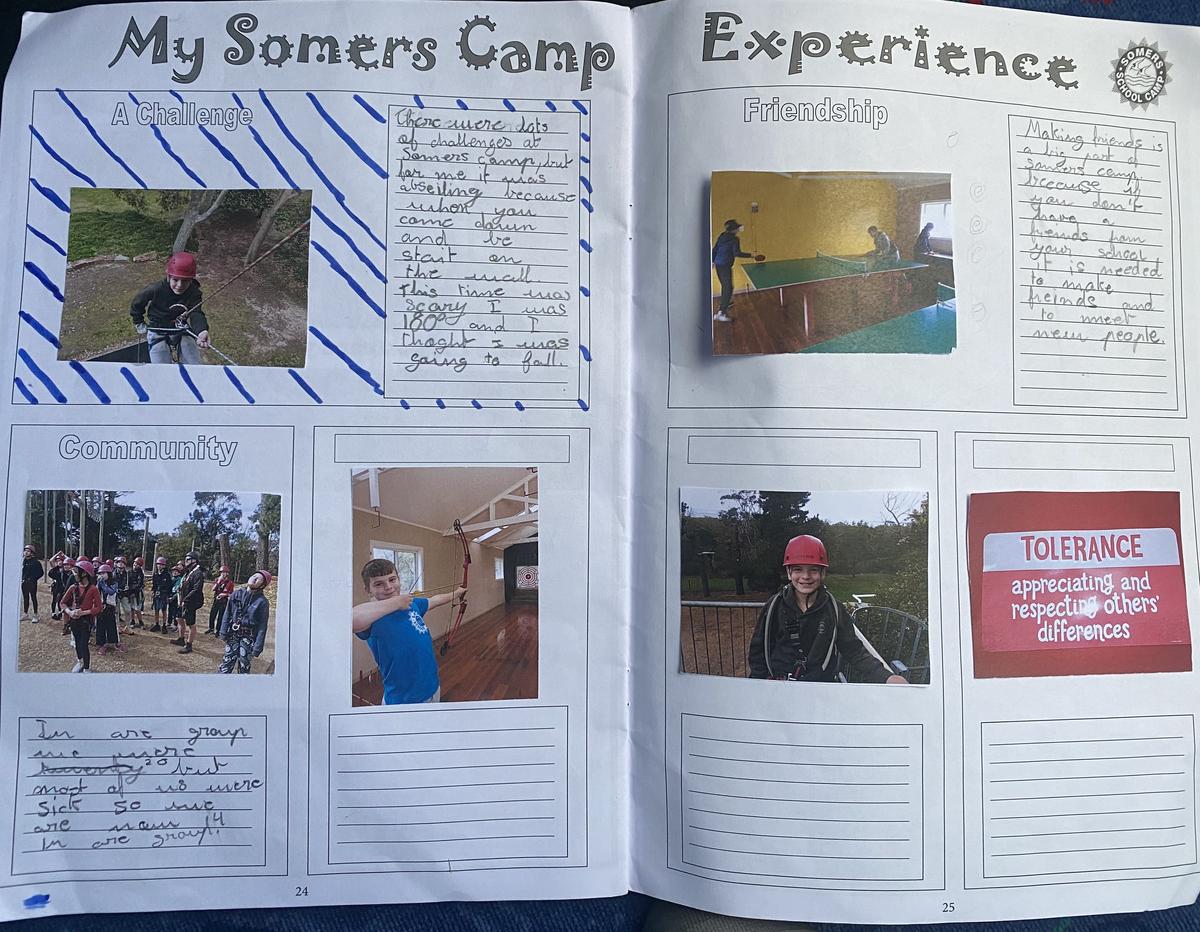 My Somers Camp Experience
SOMERS SCHOOL CAMP
A Challenge
There were lots
of challenges at
Somers camp, but
for me it was
abseiling because
when you
come down
and be
start on
the wall
this time was
scary I was
180° and I
thaght I was
going to fall.
Friendship
Making friends is
a big part of
somers camp.
because if
you don't
have a
freinds from
your school,
it is needed
to make
freinds and
to meet
new people.
Community
In are group
we were
twenty 20 but
most of us were
sick so we
are now 14
In are group!
TOLERANCE
appreciating and
respecting others'
differences
24
25